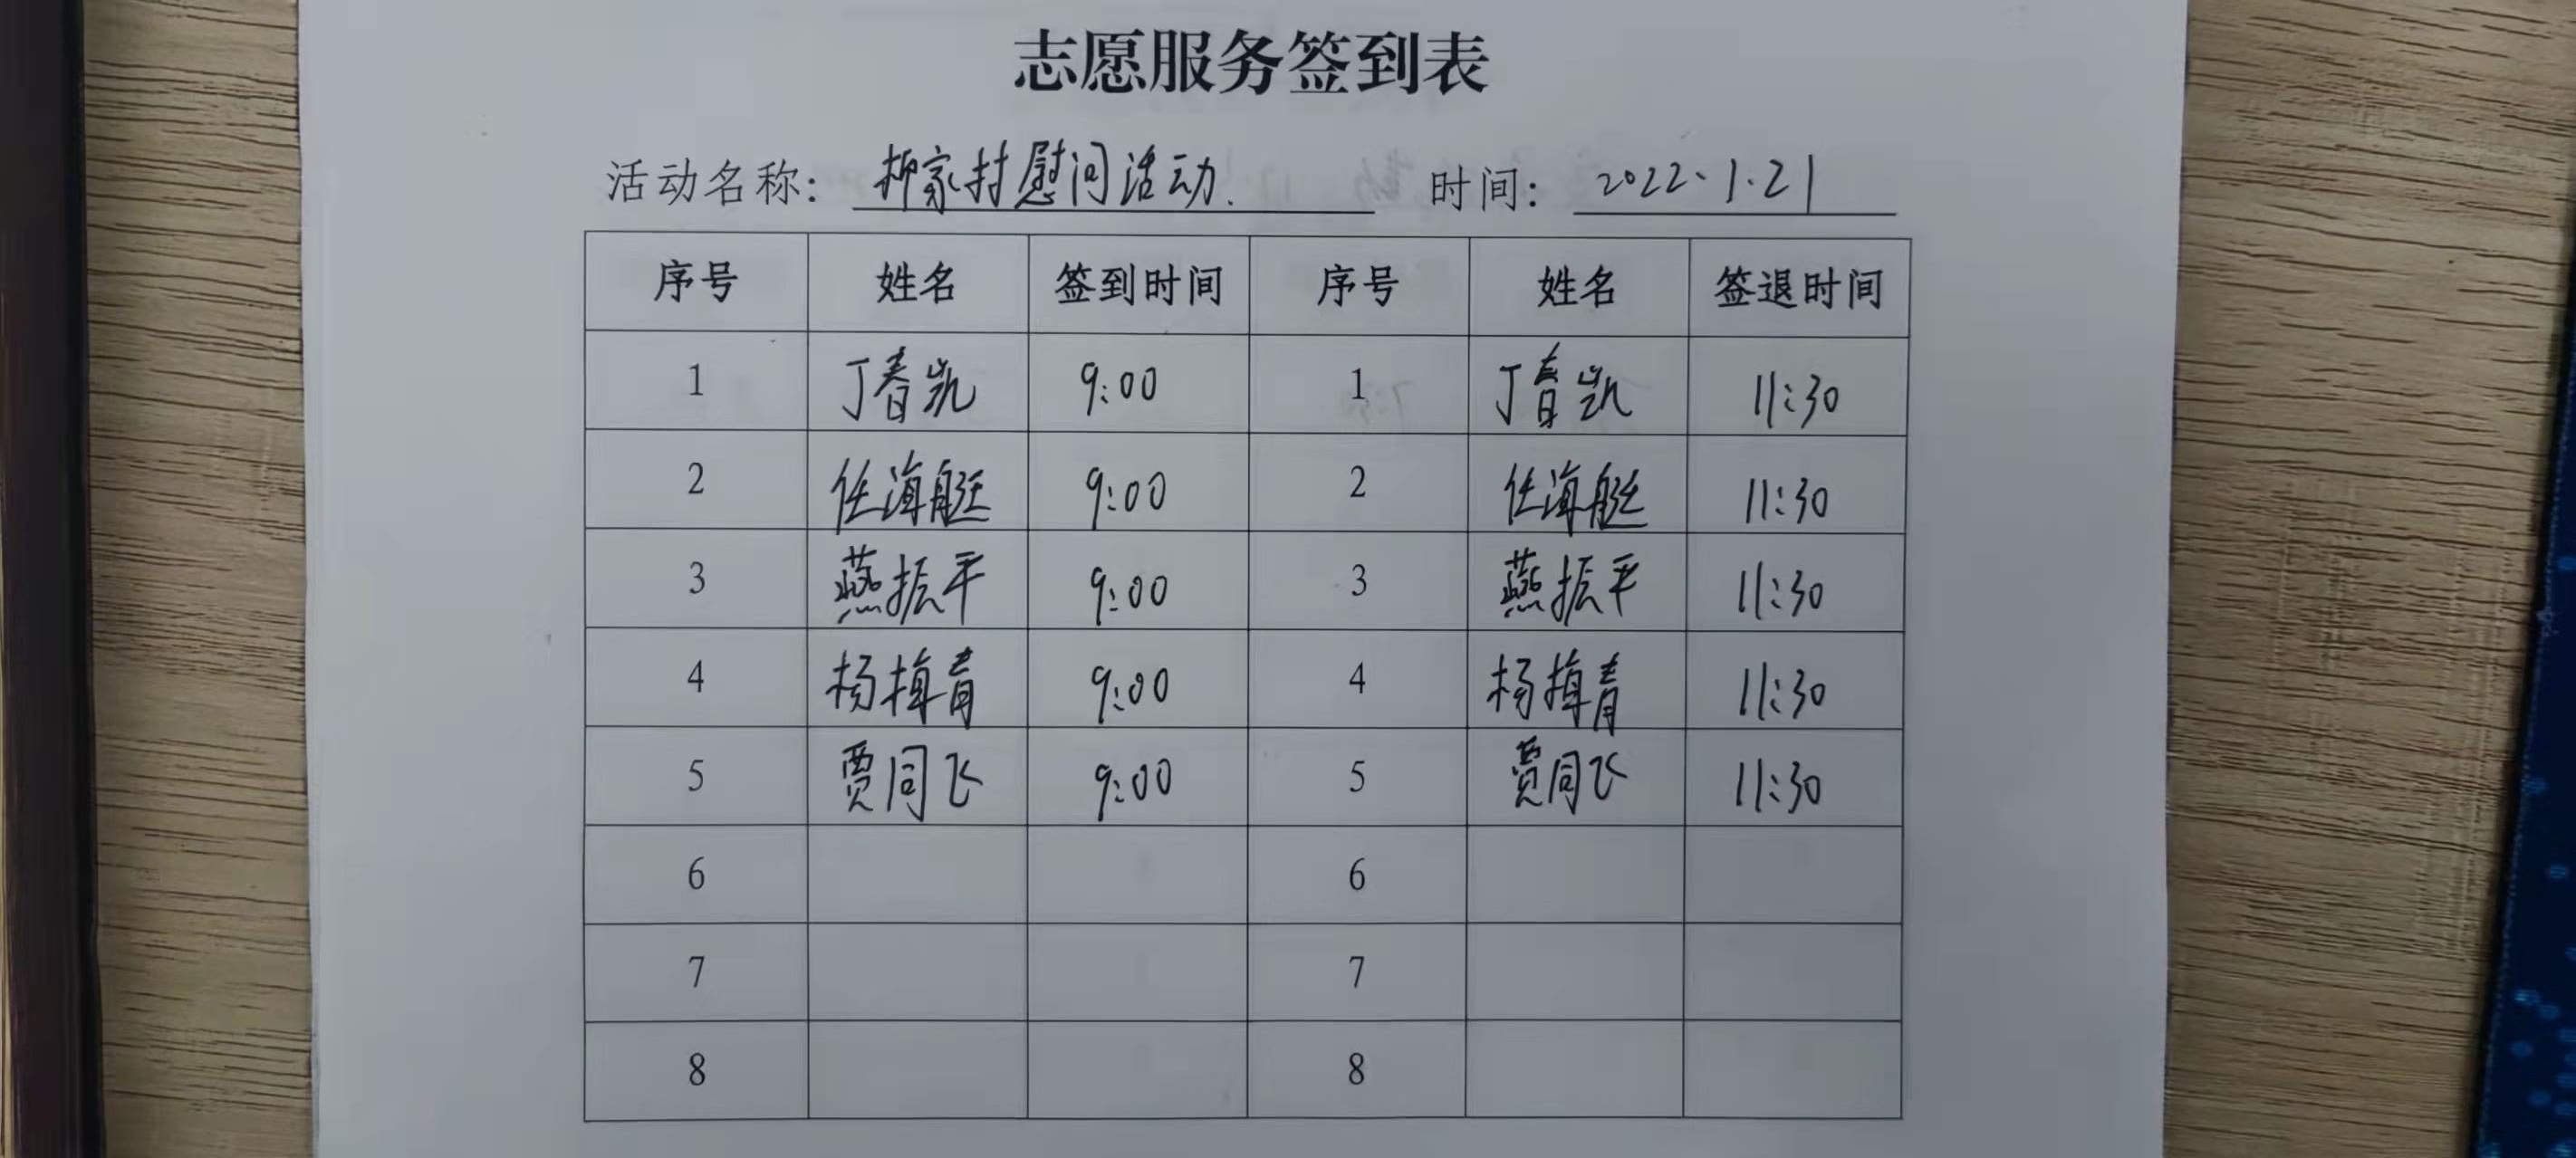 志愿服务签到表
活动名称: 柳家村慰问活动. 时间: 2022.1.21
序号 姓名 签到时间 序号 姓名 签退时间
1 丁春凯 9:00 1 丁春凯 11:30
2 任海艇 9:00 2 任海艇 11:30
3 燕振平 9:00 3 燕振平 11:30
4 杨梅青 9:00 4 杨梅青 11:30
5 贾同飞 9:00 5 贾同飞 11:30
6 6
7 7
8 8